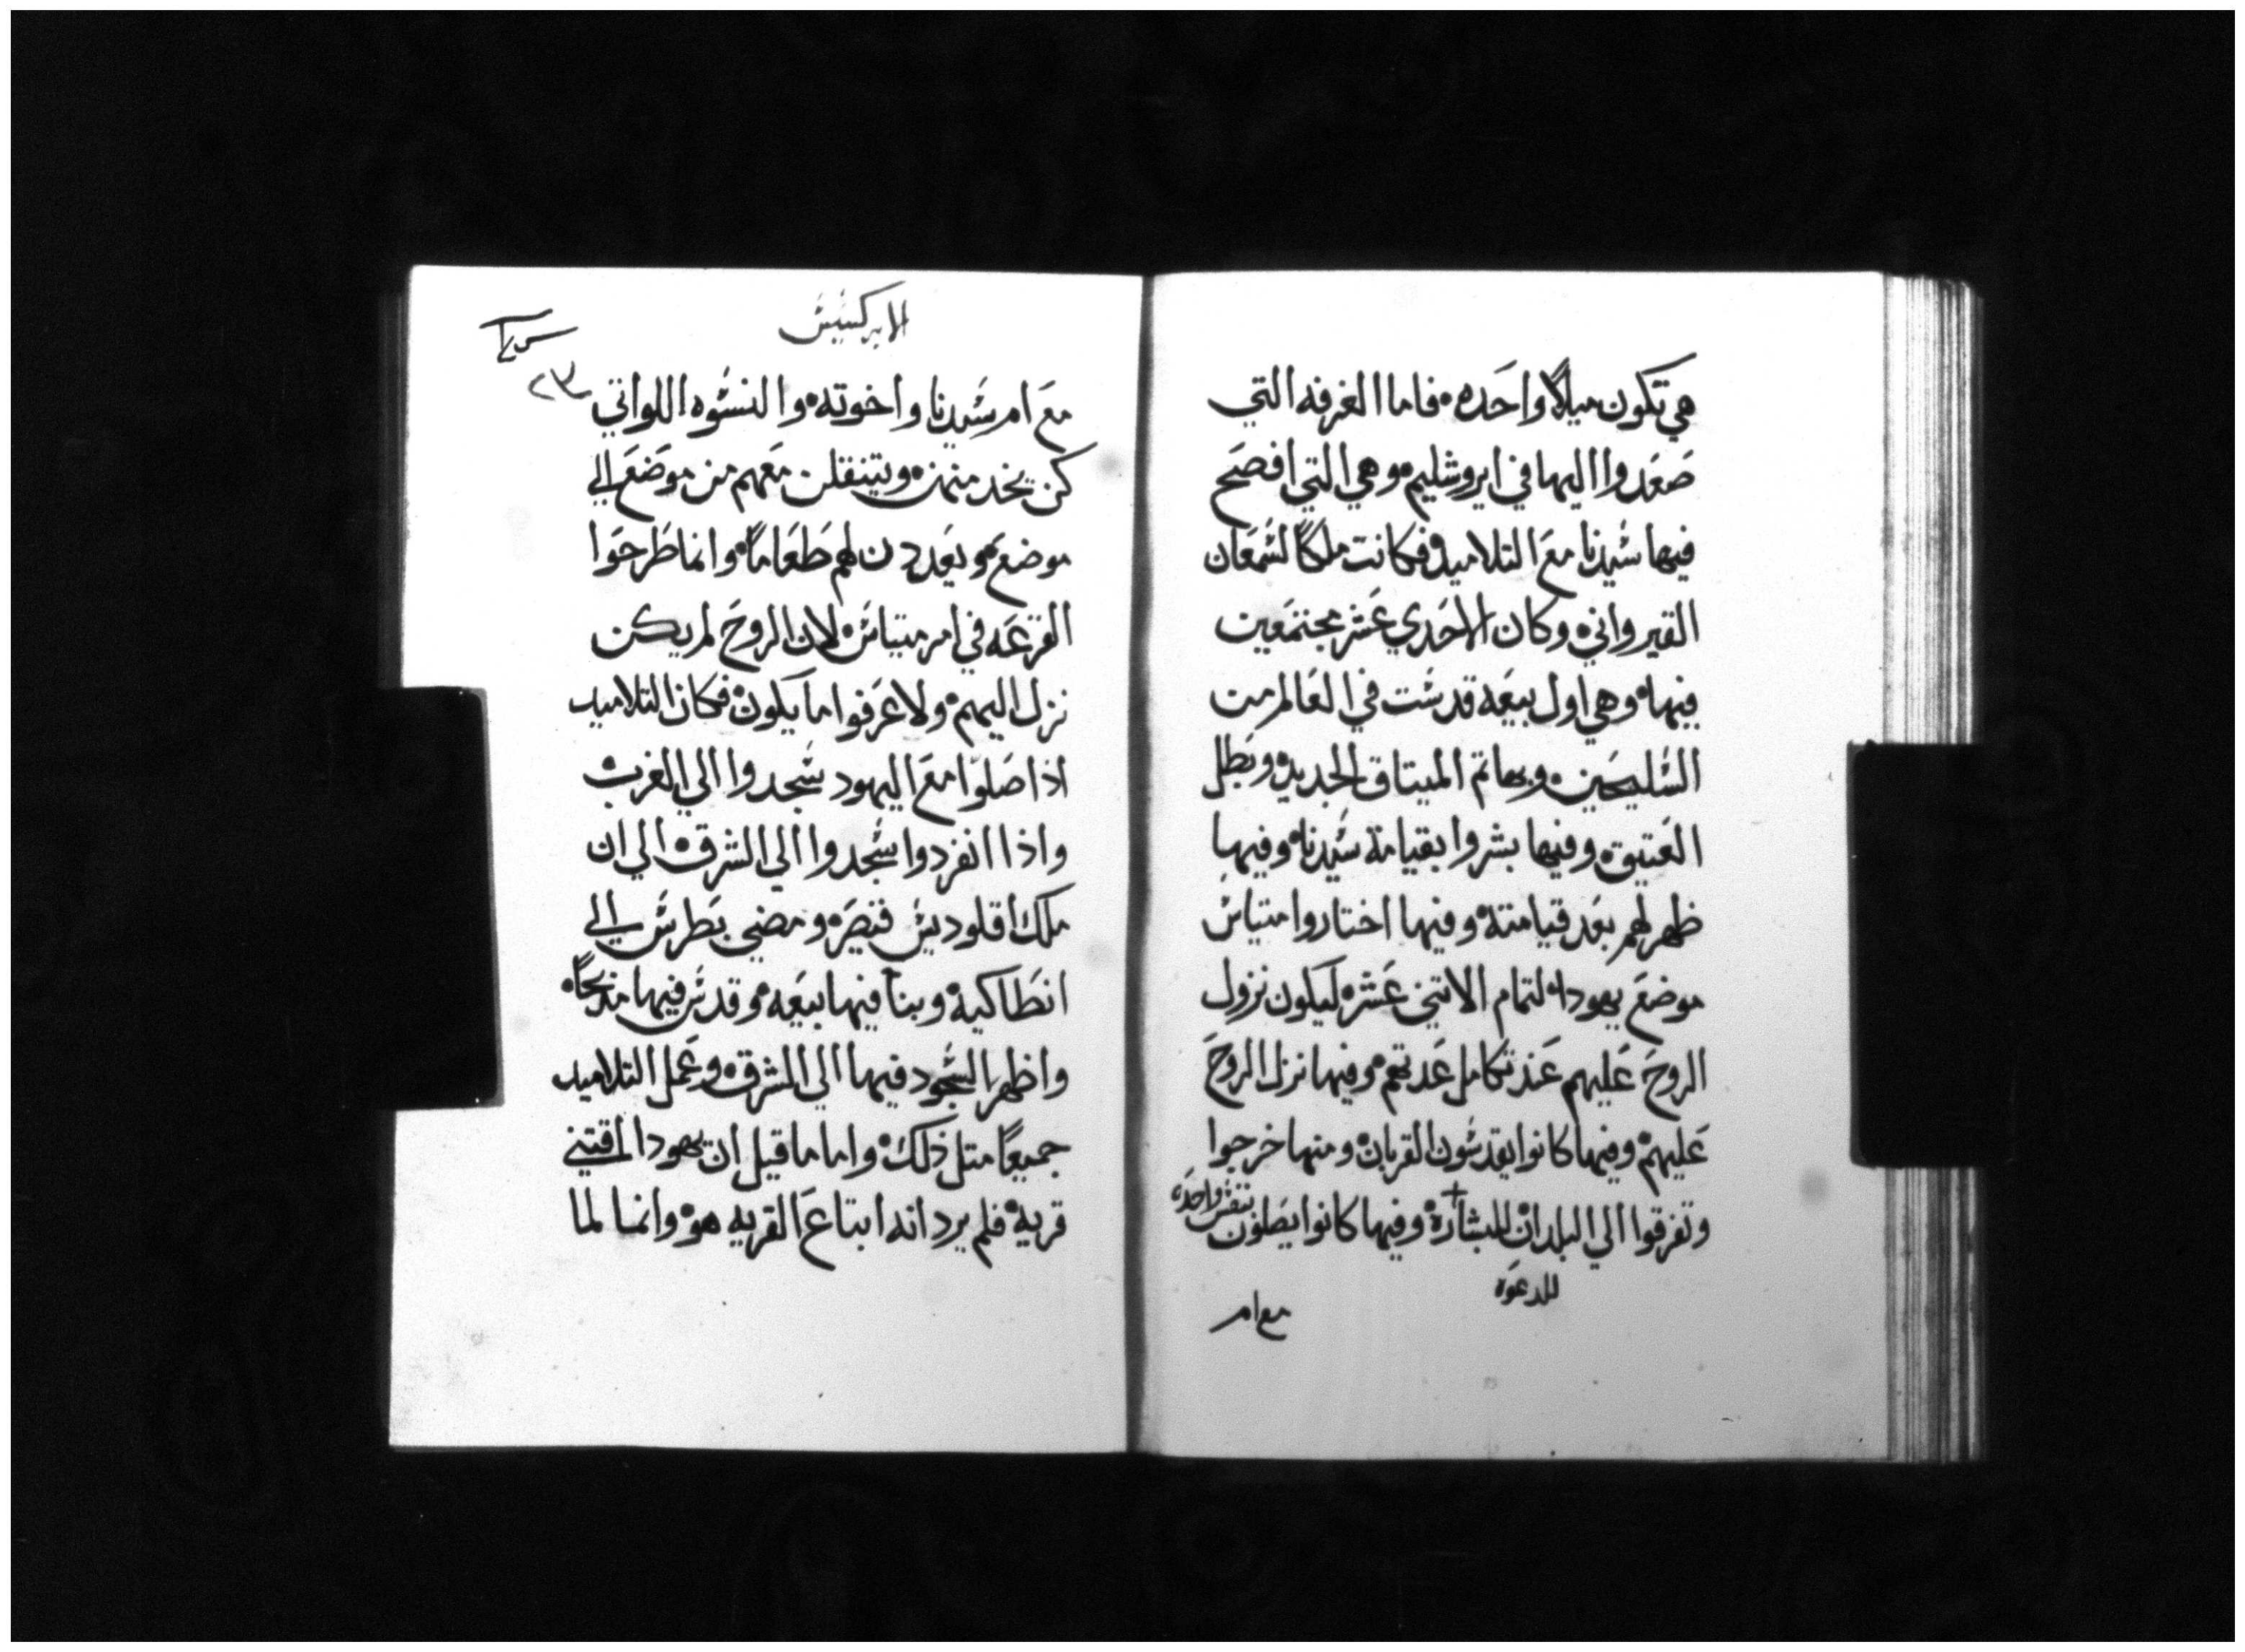 هي تكون ميلاً واحده فاما الغرفه التي
صعدوا اليها في ايروشليم وهي التي افصح
فيها سيدنا مع التلاميد فكانت ملكاً لشمعان
القيرواني وكان الاحدي عشر مجتمعين
فيها وهي اول بيعه قدست في العالم من
السليحين وبها تم الميتاق الجديد وبطل
العتيق وفيها بشروا بقيامة سيدنا وفيها
ظهر لهم بعد قيامته وفيها اختاروا متياس
موضع يهودا لتمام الاتني عشر ليكون نزول
الروح عليهم عند تكامل عدتهم وفيها نزل الروح
عليهم وفيها كانوا يقدسون القربان ومنها خرجوا
وتفرقوا الي البلدان للبشاره وفيها كانوا يصلون بنفس واحده
للدعوه
مع ام
الابركسيس
٢٣
مع ام سيدنا واخوته والنسوه اللواتي
كن يخدمنهن ويتنقلن معهم من موضع الي
موضع ويعددن لهم طعاماً وانما طرحوا
القرعه في امر متياس لان الروح لم يكن
نزل اليهم ولا عرفوا ما يكون فكان التلاميد
اذا صلوا مع اليهود سجدوا الي الغرب
واذا انفردوا سجدوا الي الشرق الي ان
ملك اقلوديس قيصر ومضي بطرس الي
انطاكيه وبنا فيها بيعه وقدس فيها مدبحاً
واظهر السجود فيها الي المشرق وعمل التلاميد
جميعاً متل ذلك واما ما قيل ان يهودا اقتني
قريه فلم يرد انه ابتاع القريه هو وانما لما